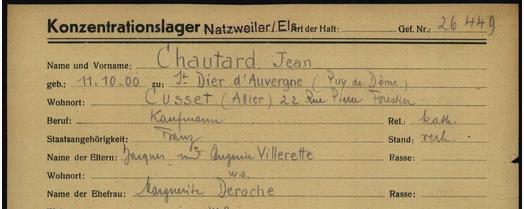 Konzentrationslager Natzweiler/Els. Art der Haft: Gef. Nr.: 26 449
Name und Vorname: Chautard, Jean
geb.: 11.10.00 zu: St Dier d'Auvergne (Puy de Dôme)
Wohnort: Cusset (Allier) 22 Rue Pierre
Beruf: Kaufmann Rel.: kath.
Staatsangehörigkeit: Franz Stand: verh.
Name der Eltern: Jacques und Eugenie Villerette Rasse:
Wohnort: w.o.
Name der Ehefrau: Marguerite Deroche Rasse: